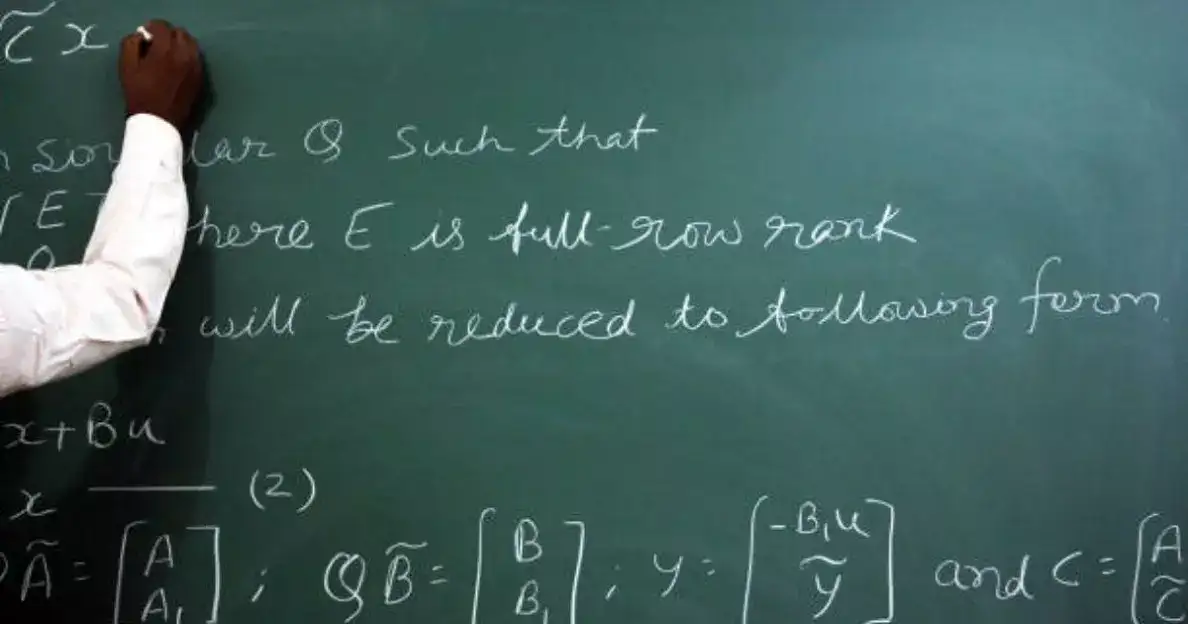 C̃ x
lar Q such that
[ E
0 here E is full-row rank
will be reduced to following form
x+Bu
x (2)
Q Ã = [ A A₁ ] ; Q B̃ = [ B B₁ ] ; y = [ -B₁u ỹ ] and C = [ A C̃